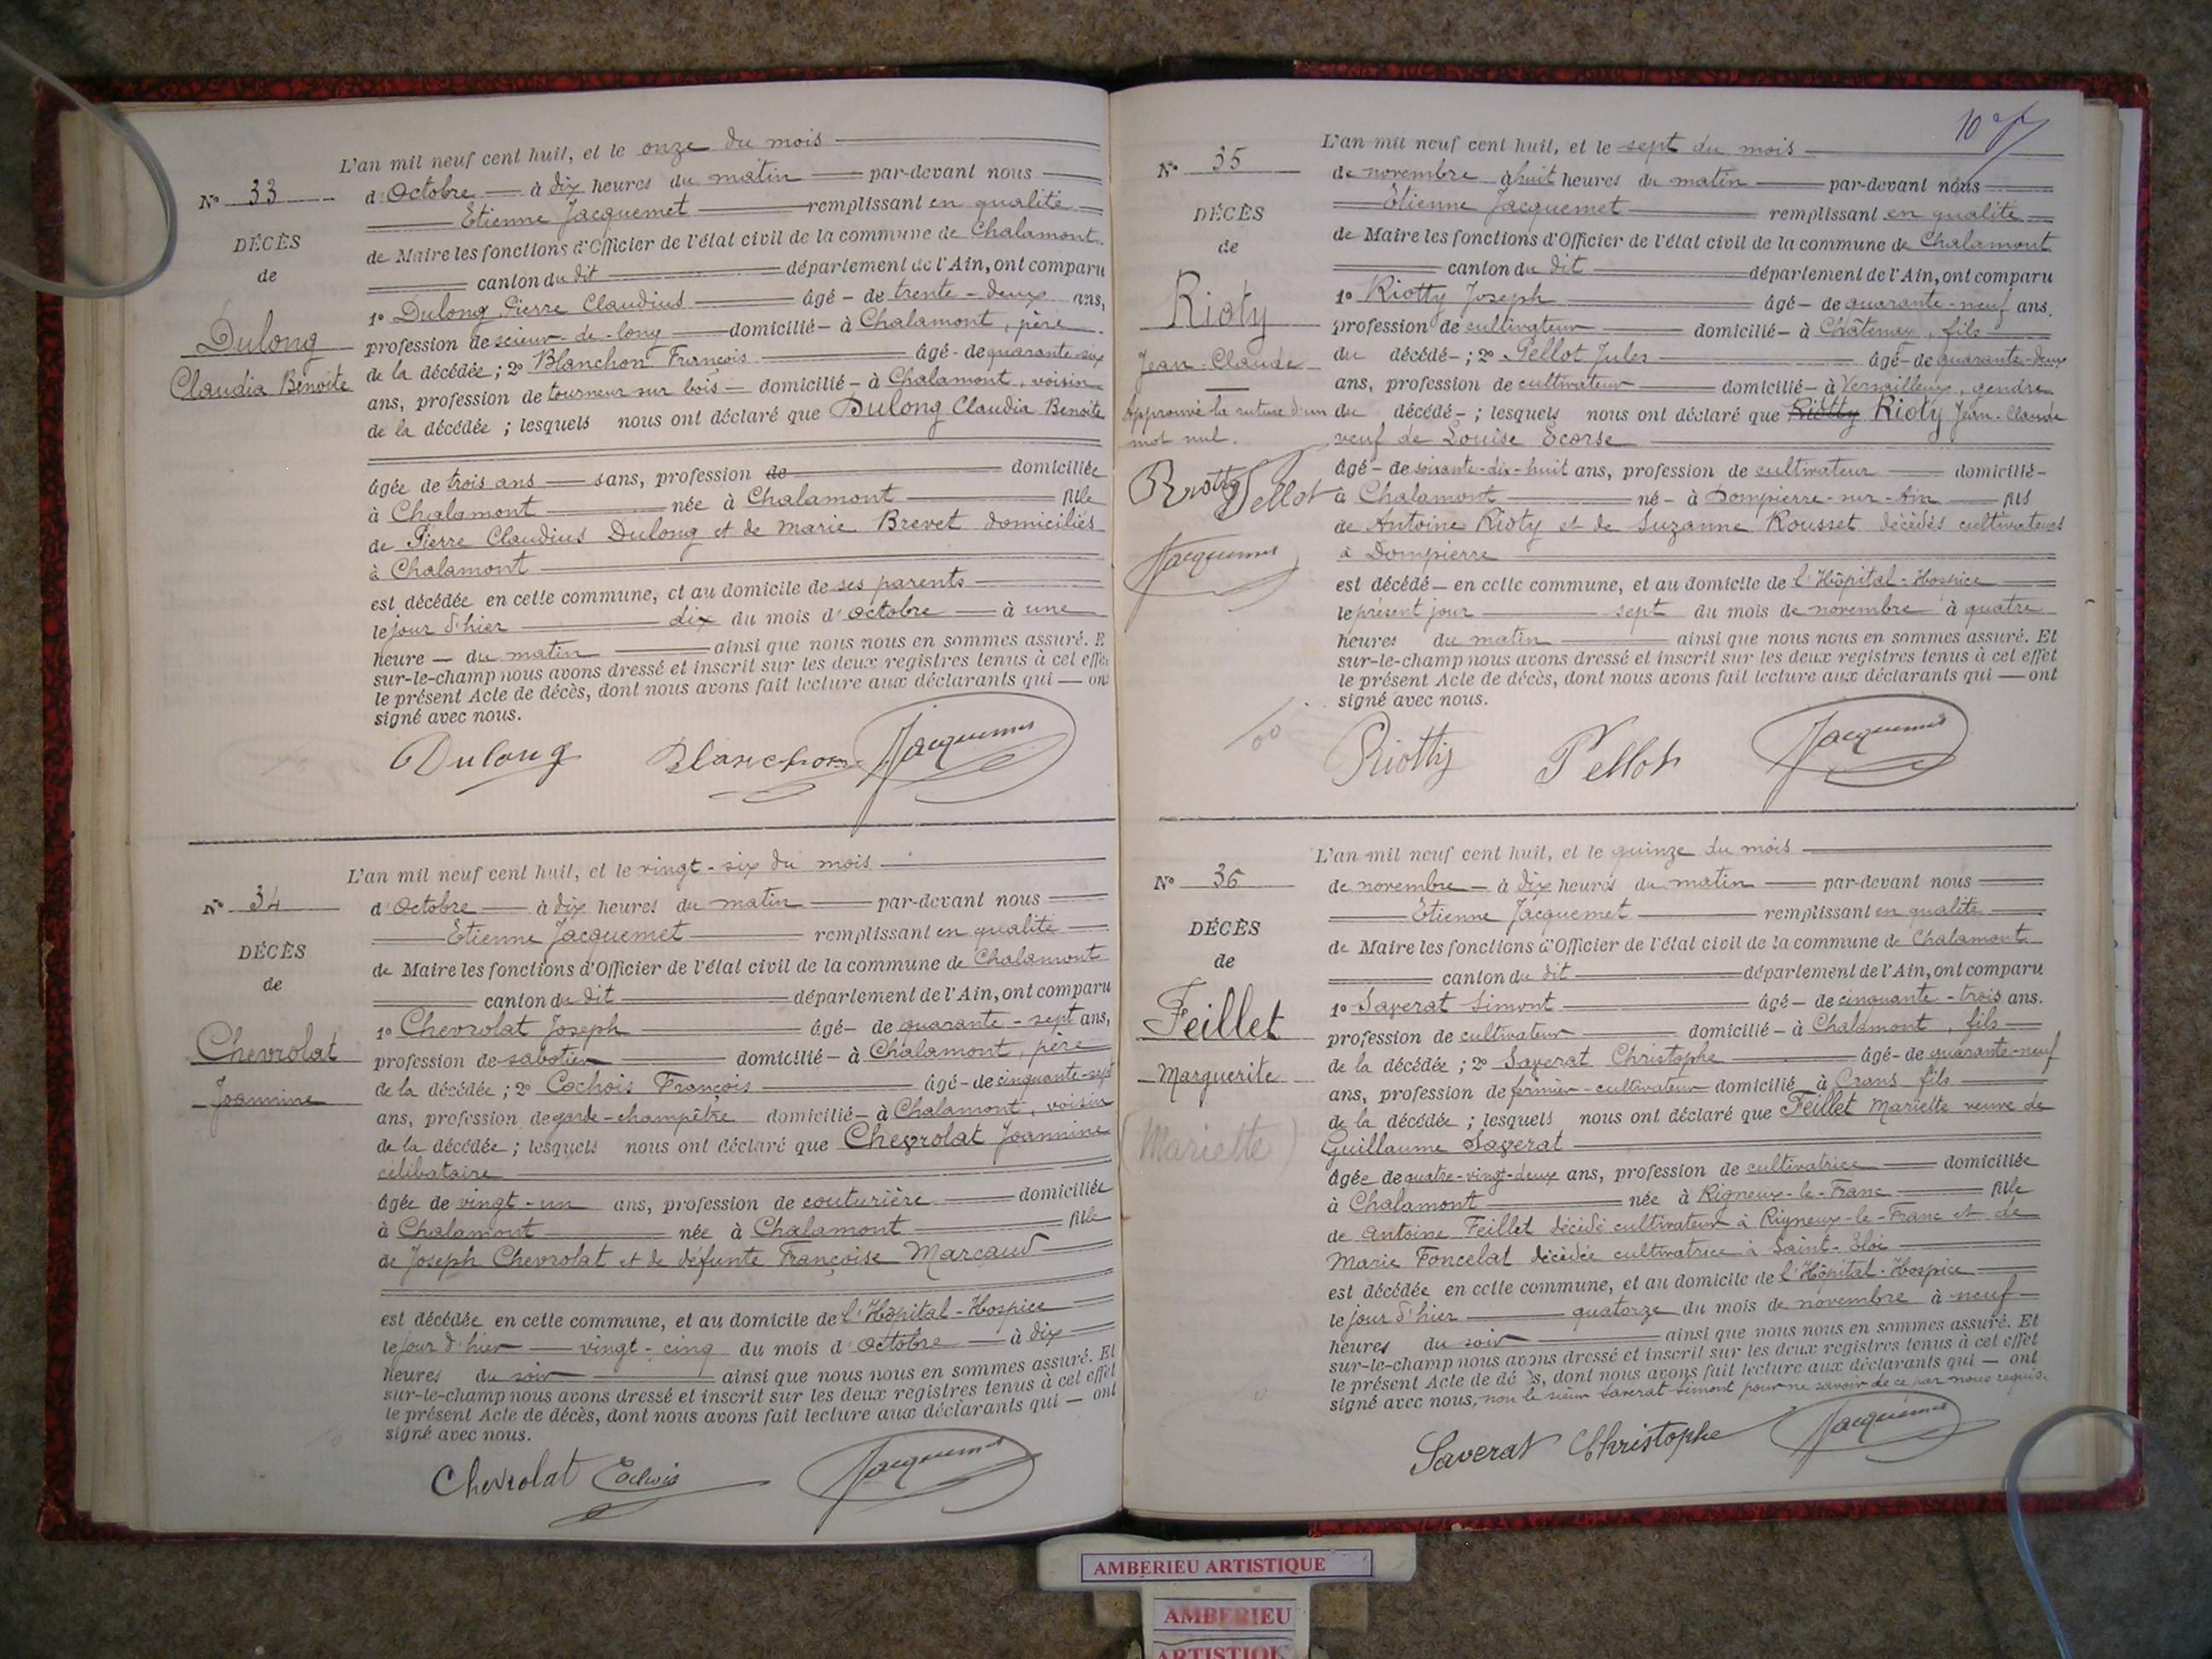 L'an mil neuf cent huit, et le onze du mois
N° 33
d'Octobre à dix heures du matin par-devant nous
Etienne Jacquemet remplissant en qualité
DÉCÈS
de Maire les fonctions d'Officier de l'état civil de la commune de Chalamont
de
canton du dit département de l'Ain, ont comparu
1° Dulong Pierre Claudius âgé - de trente - deux ans,
Dulong
profession de scieur - de - long domicilié - à Chalamont, père
Claudia Benoite
de la décédée ; 2° Blanchon François âgé - de quarante-six
ans, profession de tourneur sur bois domicilié - à Chalamont, voisin
de la décédée ; lesquels nous ont déclaré que Dulong Claudia Benoite
âgée de trois ans sans, profession de domiciliée
à Chalamont née à Chalamont fille
de Pierre Claudius Dulong et de Marie Brevet domiciliés
à Chalamont
est décédée en cette commune, et au domicile de ses parents
le jour d'hier dix du mois d'octobre à une
heure - du matin ainsi que nous nous en sommes assuré. E
sur-le-champ nous avons dressé et inscrit sur les deux registres tenus à cet effe
le présent Acte de décès, dont nous avons fait lecture aux déclarants qui - on
signé avec nous.
Dulong Blanchon Jacquemet
L'an mil neuf cent huit, et le vingt - six du mois
N° 34
d'Octobre à dix heures du matin par-devant nous
Etienne Jacquemet remplissant en qualité
DÉCÈS
de Maire les fonctions d'Officier de l'état civil de la commune de Chalamont
de
canton du dit département de l'Ain, ont comparu
1° Chevrolat Joseph âgé - de quarante - sept ans,
Chevrolat
profession de sabotier domicilié - à Chalamont, père
Joannine
de la décédée ; 2° Cochois François âgé - de cinquante-sept
ans, profession de garde-champêtre domicilié - à Chalamont, voisin
de la décédée ; lesquels nous ont déclaré que Chevrolat Joannine
célibataire
âgée de vingt - un ans, profession de couturière domiciliée
à Chalamont née à Chalamont fille
de Joseph Chevrolat et de défunte Françoise Marcaud
est décédée en cette commune, et au domicile de l'Hôpital - Hospice
le jour d'hier vingt - cinq du mois d'Octobre à dix
heures du soir ainsi que nous nous en sommes assuré. Et
sur-le-champ nous avons dressé et inscrit sur les deux registres tenus à cet effet
le présent Acte de décès, dont nous avons fait lecture aux déclarants qui - ont
signé avec nous.
Chevrolat Cochois Jacquemet
L'an mil neuf cent huit, et le sept du mois
N° 35
de novembre à huit heures du matin par-devant nous
Etienne Jacquemet remplissant en qualité
DÉCÈS
de Maire les fonctions d'Officier de l'état civil de la commune de Chalamont
de
canton du dit département de l'Ain, ont comparu
1° Riotty Joseph âgé - de quarante-neuf ans.
Rioty
profession de cultivateur domicilié - à Châtenay, fils
Jean-Claude
du décédé - ; 2° Pellot Jules âgé - de quarante-deux
ans, profession de cultivateur domicilié - à Versailleux, gendre
Approuvé la rature d'un
mot nul.
du décédé - ; lesquels nous ont déclaré que Riotty Rioty Jean-Claude
veuf de Louise Ecorse
Riotty Pellot
Jacquemet
âgé - de soixante-dix-huit ans, profession de cultivateur domicilié -
à Chalamont né - à Dompierre-sur-Ain fils
de Antoine Rioty et de Suzanne Rousset décédés cultivateurs
à Dompierre
est décédé - en cette commune, et au domicile de l'Hôpital-Hospice
le présent jour sept du mois de novembre à quatre
heures du matin ainsi que nous nous en sommes assuré. Et
sur-le-champ nous avons dressé et inscrit sur les deux registres tenus à cet effet
le présent Acte de décès, dont nous avons fait lecture aux déclarants qui - ont
signé avec nous.
Riotty Pellot Jacquemet
L'an mil neuf cent huit, et le quinze du mois
N° 36
de novembre - à dix heures du matin par-devant nous
Etienne Jacquemet remplissant en qualité
DÉCÈS
de Maire les fonctions d'Officier de l'état civil de la commune de Chalamont
de
canton du dit département de l'Ain, ont comparu
1° Saverat Simont âgé - de cinquante - trois ans.
Feillet
profession de cultivateur domicilié - à Chalamont, fils
Marguerite
de la décédée ; 2° Saverat Christophe âgé - de quarante-neuf
ans, profession de fermier-cultivateur domicilié à Crans fils
(Mariette)
de la décédée ; lesquels nous ont déclaré que Feillet Mariette veuve de
Guillaume Saverat
âgée de quatre-vingt-deux ans, profession de cultivatrice domiciliée
à Chalamont née à Rigneux-le-Franc fille
de Antoine Feillet décédé cultivateur à Rigneux-le-Franc et de
Marie Foncelat décédée cultivatrice à Saint-Eloi
est décédée en cette commune, et au domicile de l'Hôpital-Hospice
le jour d'hier quatorze du mois de novembre à neuf
heures du soir ainsi que nous nous en sommes assuré. Et
sur-le-champ nous avons dressé et inscrit sur les deux registres tenus à cet effet
le présent Acte de dé ès, dont nous avons fait lecture aux déclarants qui - ont
signé avec nous, non le sieur Saverat Simont pour ne savoir de ce par nous requis.
Saverat Christophe Jacquemet
AMBERIEU ARTISTIQUE
AMBERIEU
ARTISTIQUE